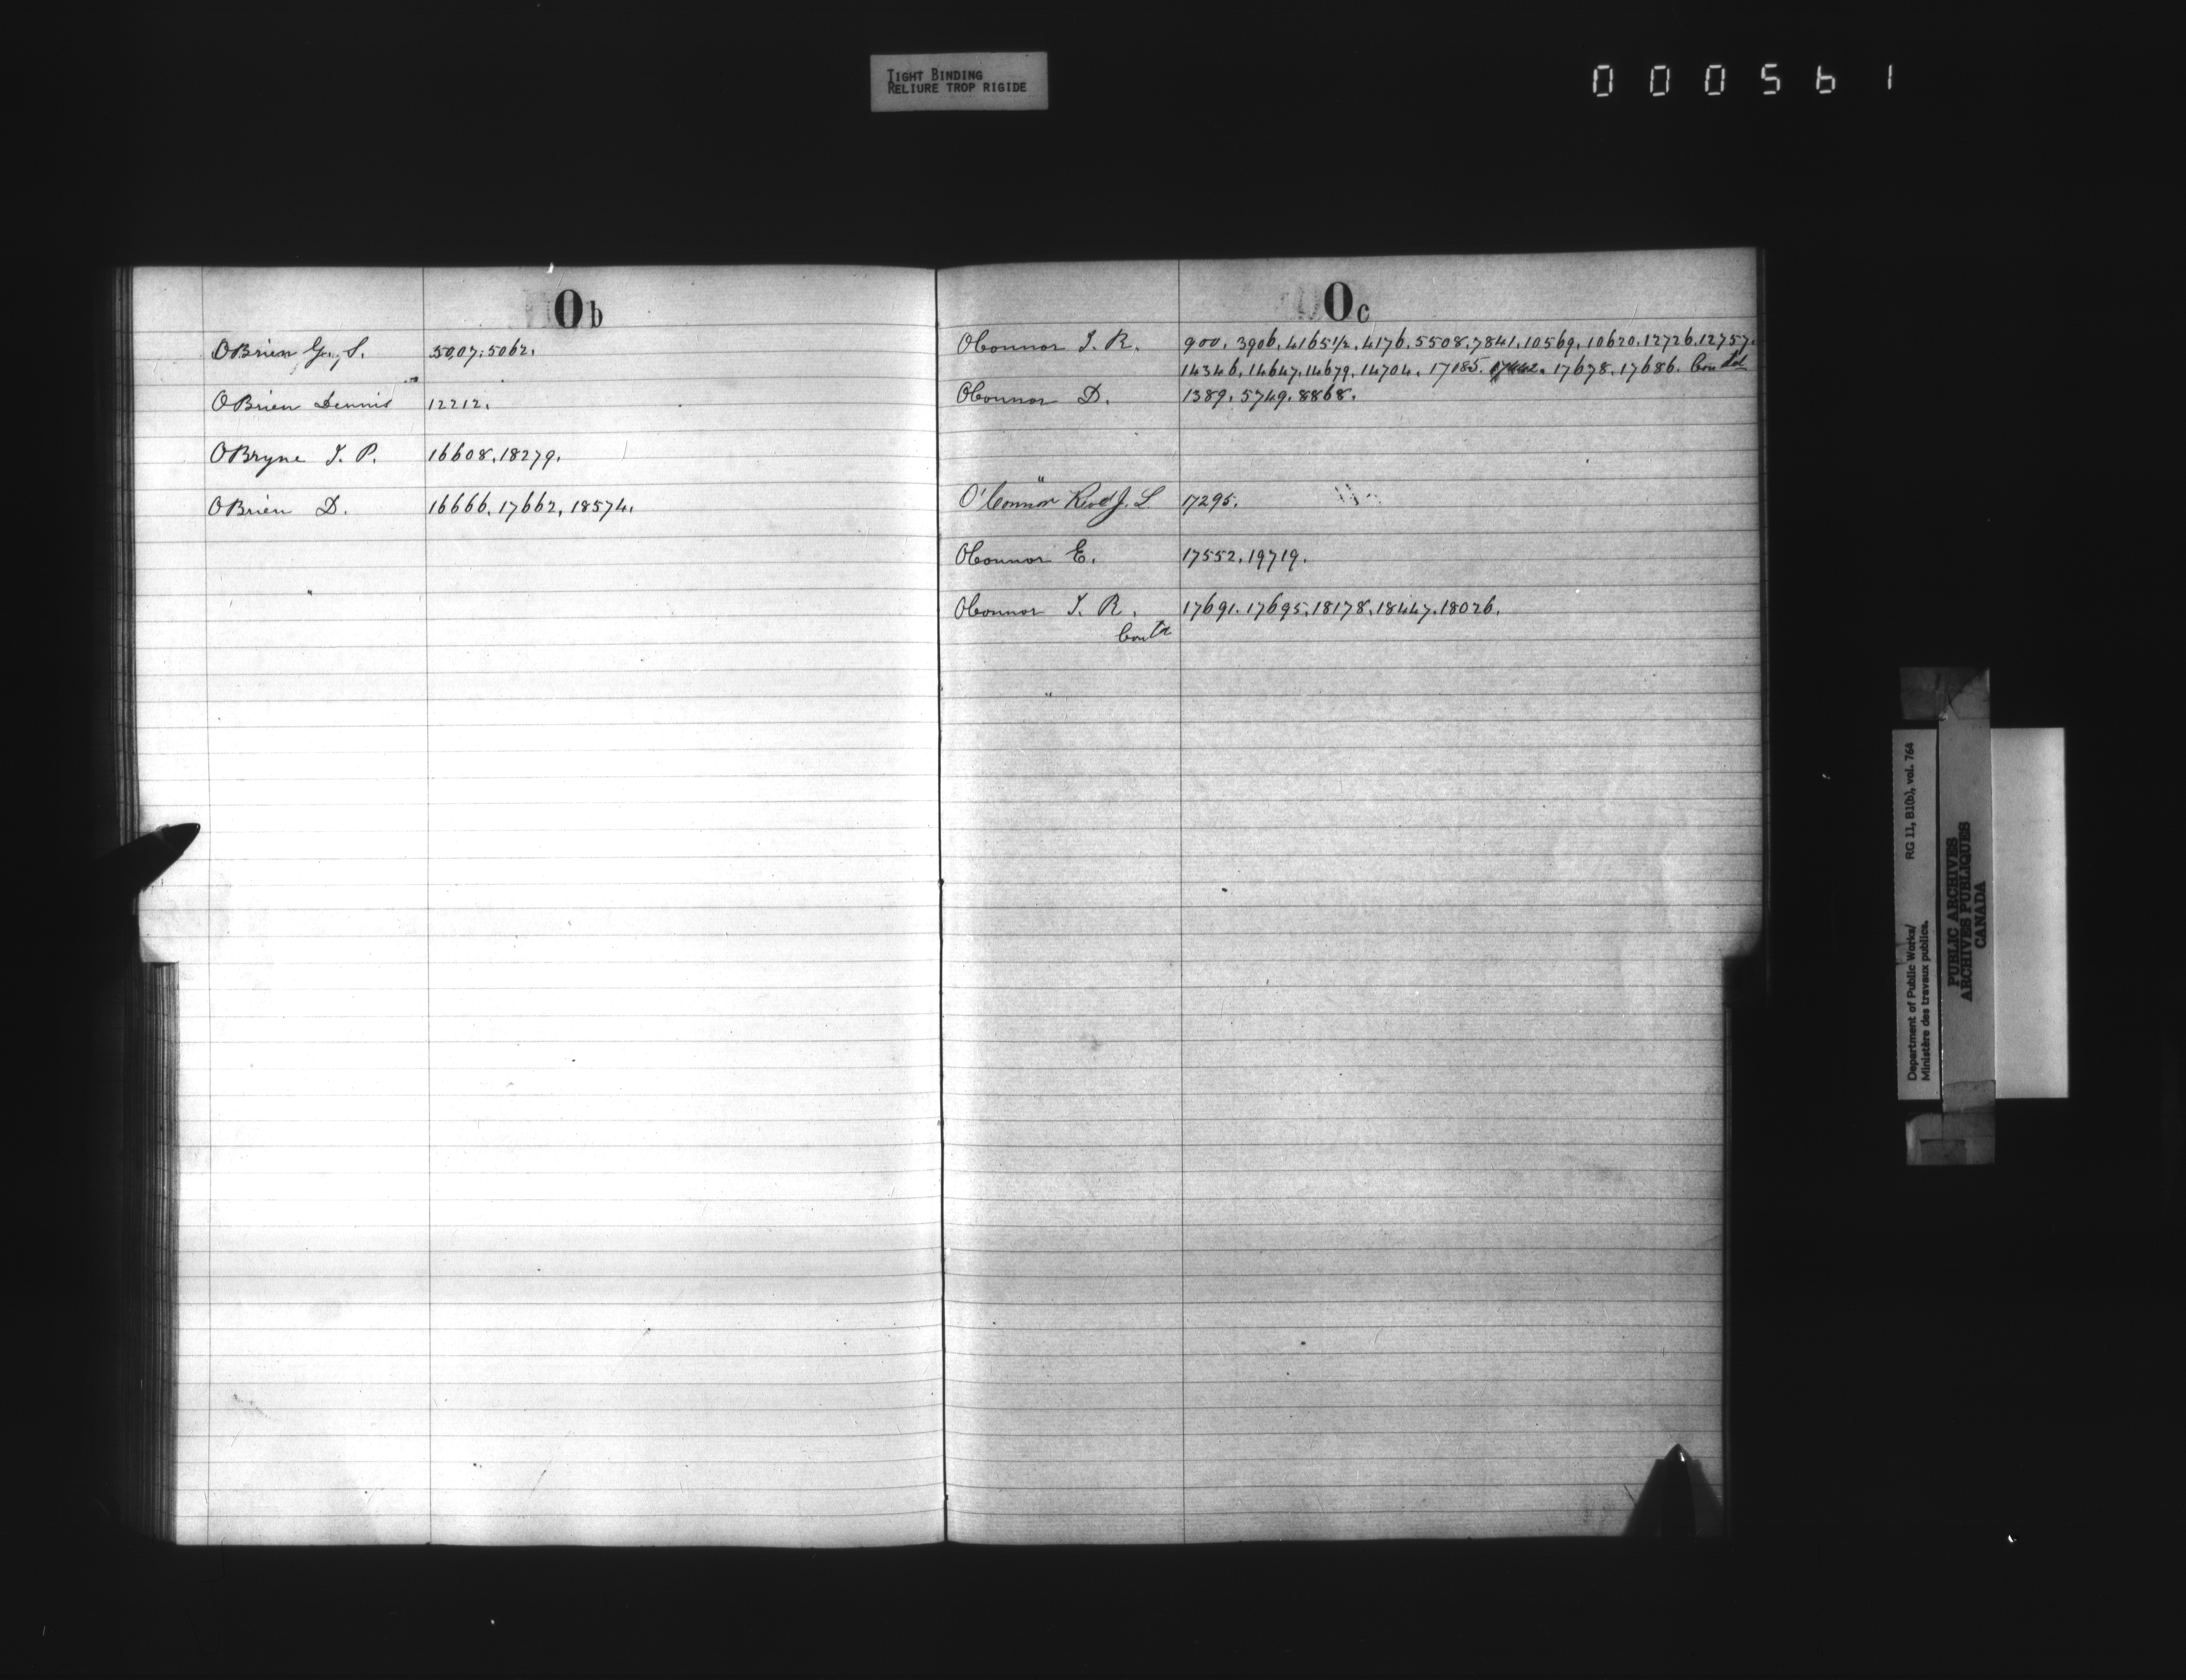 TIGHT BINDING
RELIURE TROP RIGIDE
000561
Ob
OBrien Geo. S. 5007. 5062.
OBrien Dennis 12212.
OBryne J. P. 16608. 18279.
OBrien D. 16666. 17662, 18574.
Oc
OConnor J. R. 900. 3906. 4165½. 4176. 5508. 7841. 10569. 10620. 12726. 12757.
14346. 14647. 14679. 14704. 17185. 17678. 17686. Contd
OConnor D. 1389. 5749. 8868.
O'Connor Revd J. L 17295.
OConnor E. 17552. 19719.
OConnor J. R. 17691. 17695. 18178. 18447. 18026.
Contd
Department of Public Works/ RG 11, B1(b), vol. 764
Ministère des travaux publics.
PUBLIC ARCHIVES
ARCHIVES PUBLIQUES
CANADA